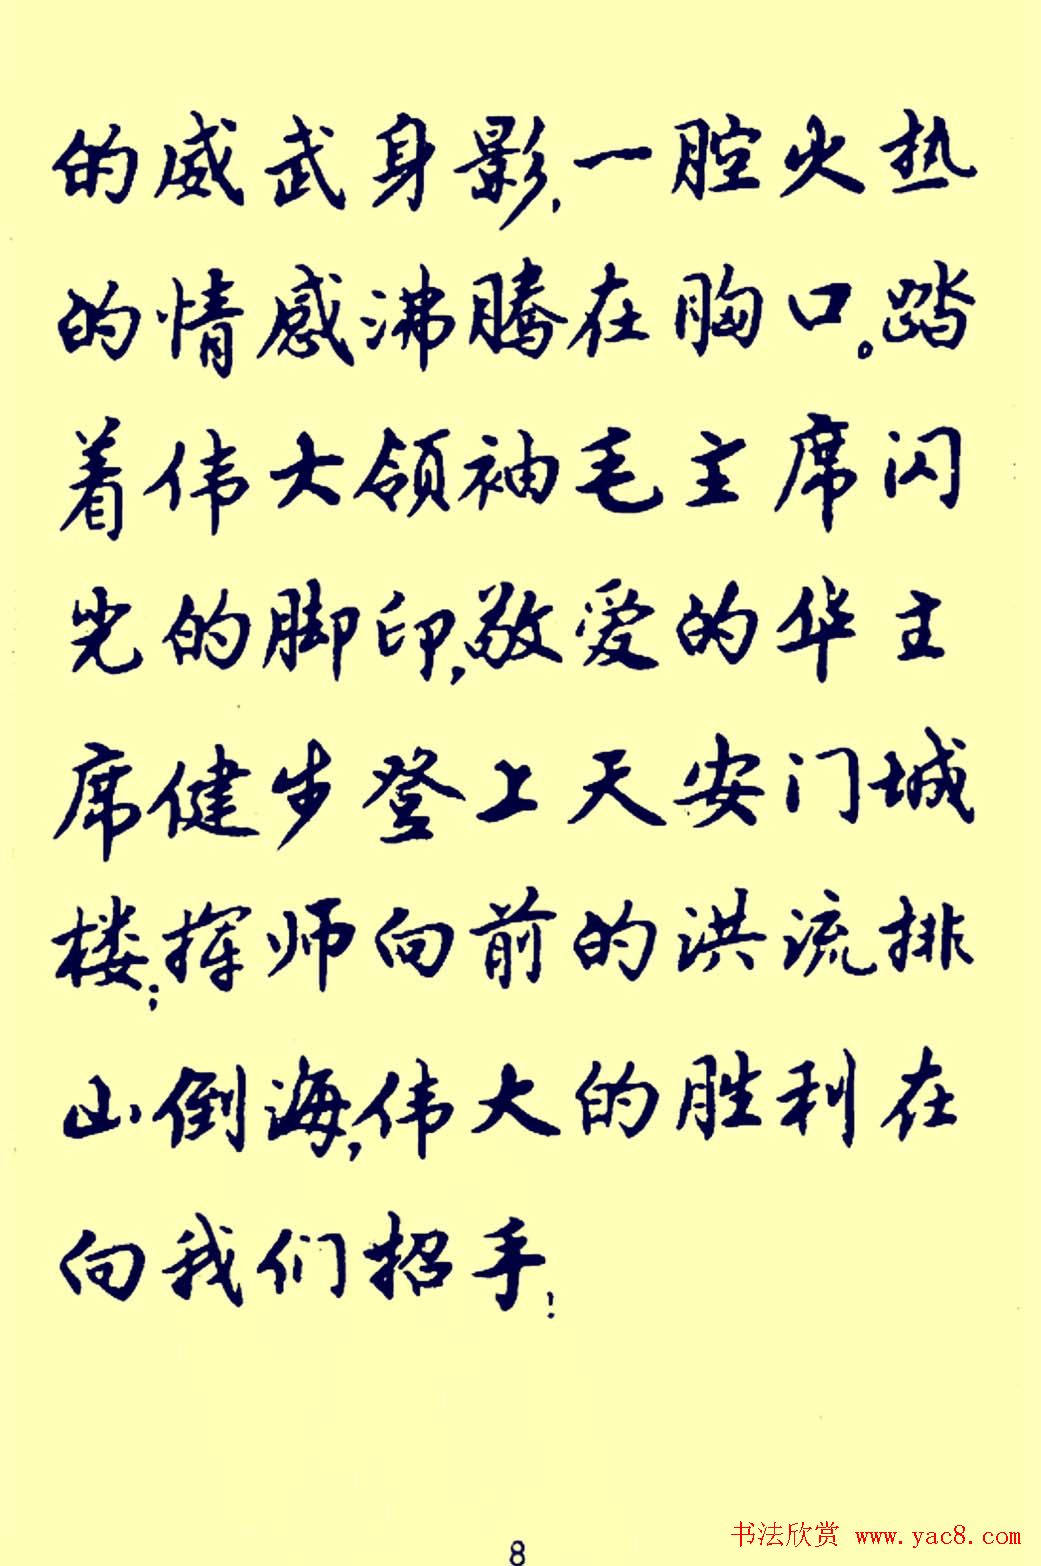 的威武身影，一腔火热
的情感沸腾在胸口。踏
着伟大领袖毛主席闪
光的脚印，敬爱的华主
席健步登上天安门城
楼；挥师向前的洪流排
山倒海，伟大的胜利在
向我们招手！
书法欣赏 www.yac8.com
8